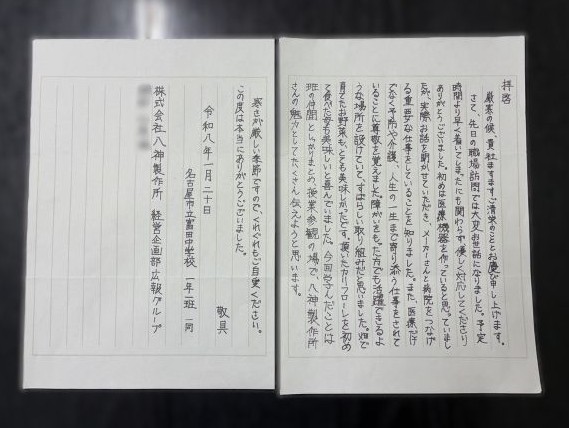 拝啓
厳寒の候、貴社ますますご清栄のこととお慶び申し上げます。
さて、先日の職場訪問では大変お世話になりました。予定
時間より早く着いてしまったにも関わらず、優しく対応してくださり
ありがとうございました。初めは医療機器を作っていると思っていまし
たが、実際お話を聞かせていただき、メーカーさんと病院をつなげ
る重要な仕事をしていることを知りました。また、医療だけ
でなく予防や介護、人生の一生まで寄り添う仕事をされて
いることに尊敬を覚えました。障がいをもった方でも活躍できるよ
うな場所を設けていて、すばらしい取り組みだと思いました。畑で
育てたお野菜も、とても美味しかったです。頂いたカリフローレを初め
て食べた母も美味しいと喜んでいました。今回学んだことは
班の仲間としっかりまとめ、授業参観の場で、八神製作所
さんの魅力としてたくさん伝えようと思います。
寒さが厳しい季節ですので、くれぐれもご自愛ください。
この度は本当にありがとうございました。
敬具
令和八年一月二十日
名古屋市立富田中学校 一年二班 一同
株式会社八神製作所 経営企画部広報グループ